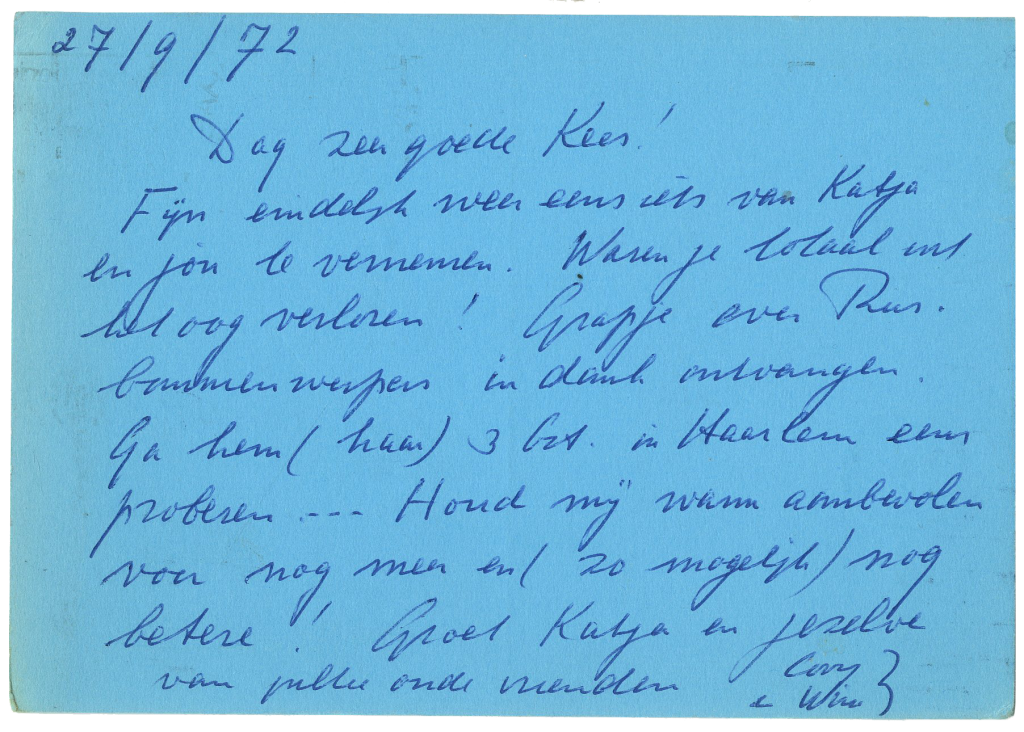 27/9/72
Dag zeer goede Kees!
Fijn eindelijk weer eens iets van Katja
en jou te vernemen. Waren je totaal uit
het oog verloren! Grapje over Rus.
bommenwerpers in dank ontvangen.
Ga hem (haar) 3 Oct. in Haarlem eens
proberen --- Houd mij warm aanbevolen
voor nog meer en (zo mogelijk) nog
betere! Groet Katja en jezelve
van jullie oude vrienden Corry
en Wim